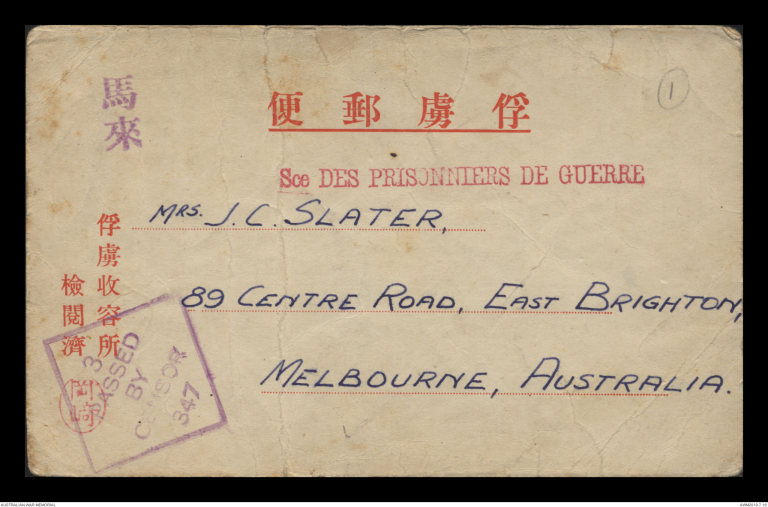 馬來
便郵虜俘
1
Sce DES PRISONNIERS DE GUERRE
MRS. J. C. SLATER,
89 CENTRE ROAD, EAST BRIGHTON,
MELBOURNE, AUSTRALIA.
俘虜收容所
檢閱濟
岡崎
3
PASSED
BY
CENSOR
347
AUSTRALIAN WAR MEMORIAL